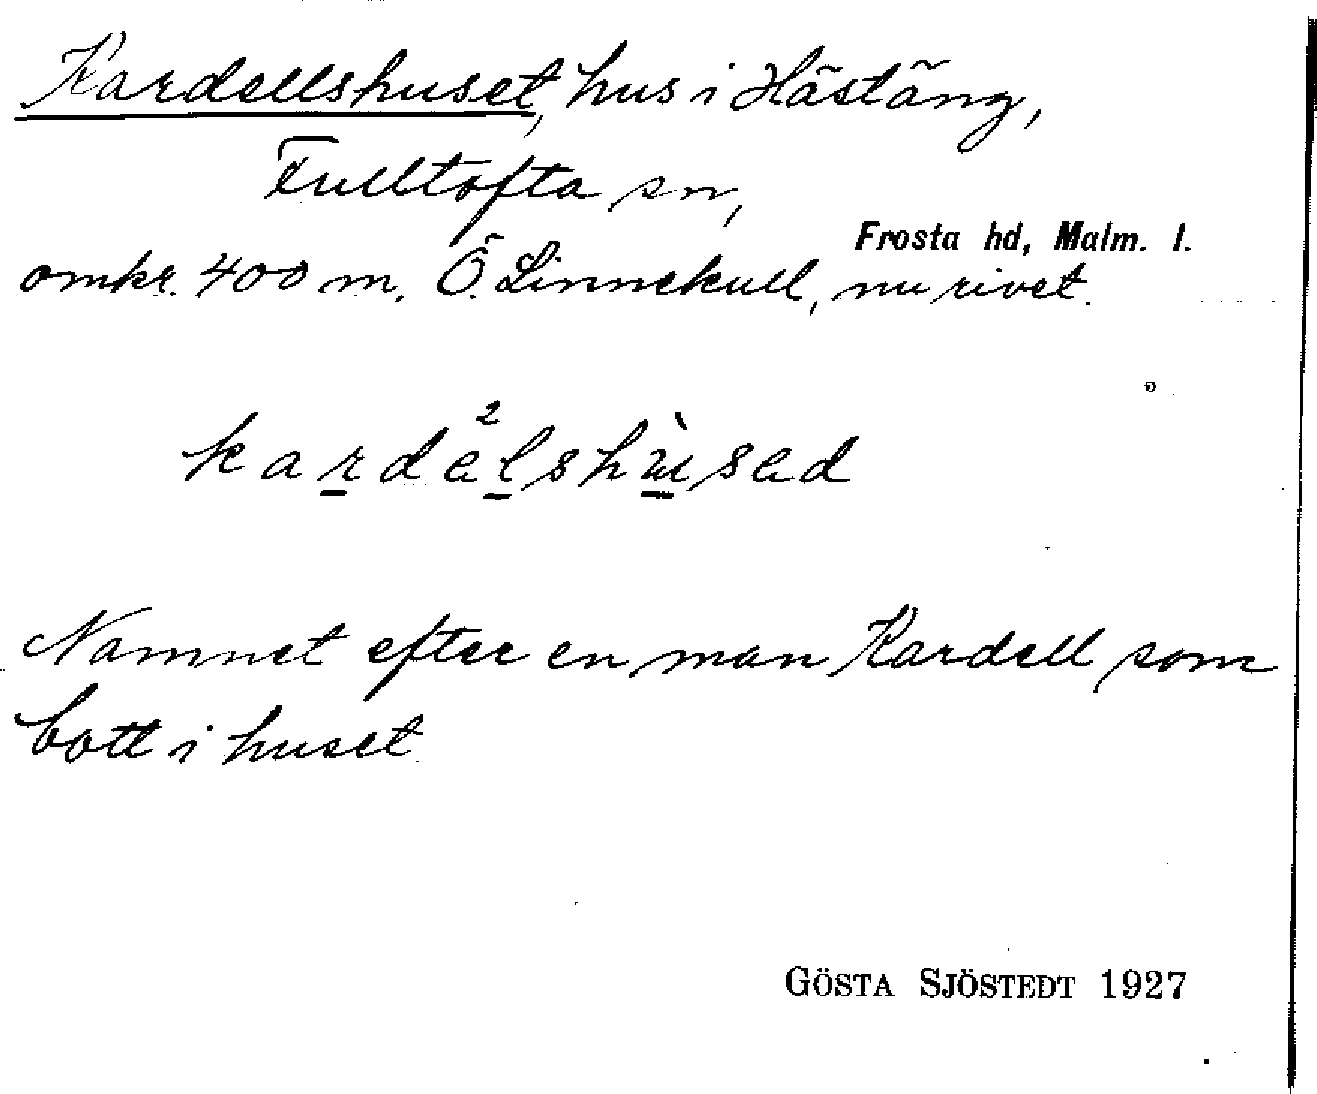 Kardellshuset, hus i Hästäng,
Fulltofta sn,
Frosta hd, Malm. l.
omkr. 400 m. Ö. Linnekull, nu rivet.
kardälshùsad
Namnet efter en man Kardell som
bott i huset.
GÖSTA SJÖSTEDT 1927